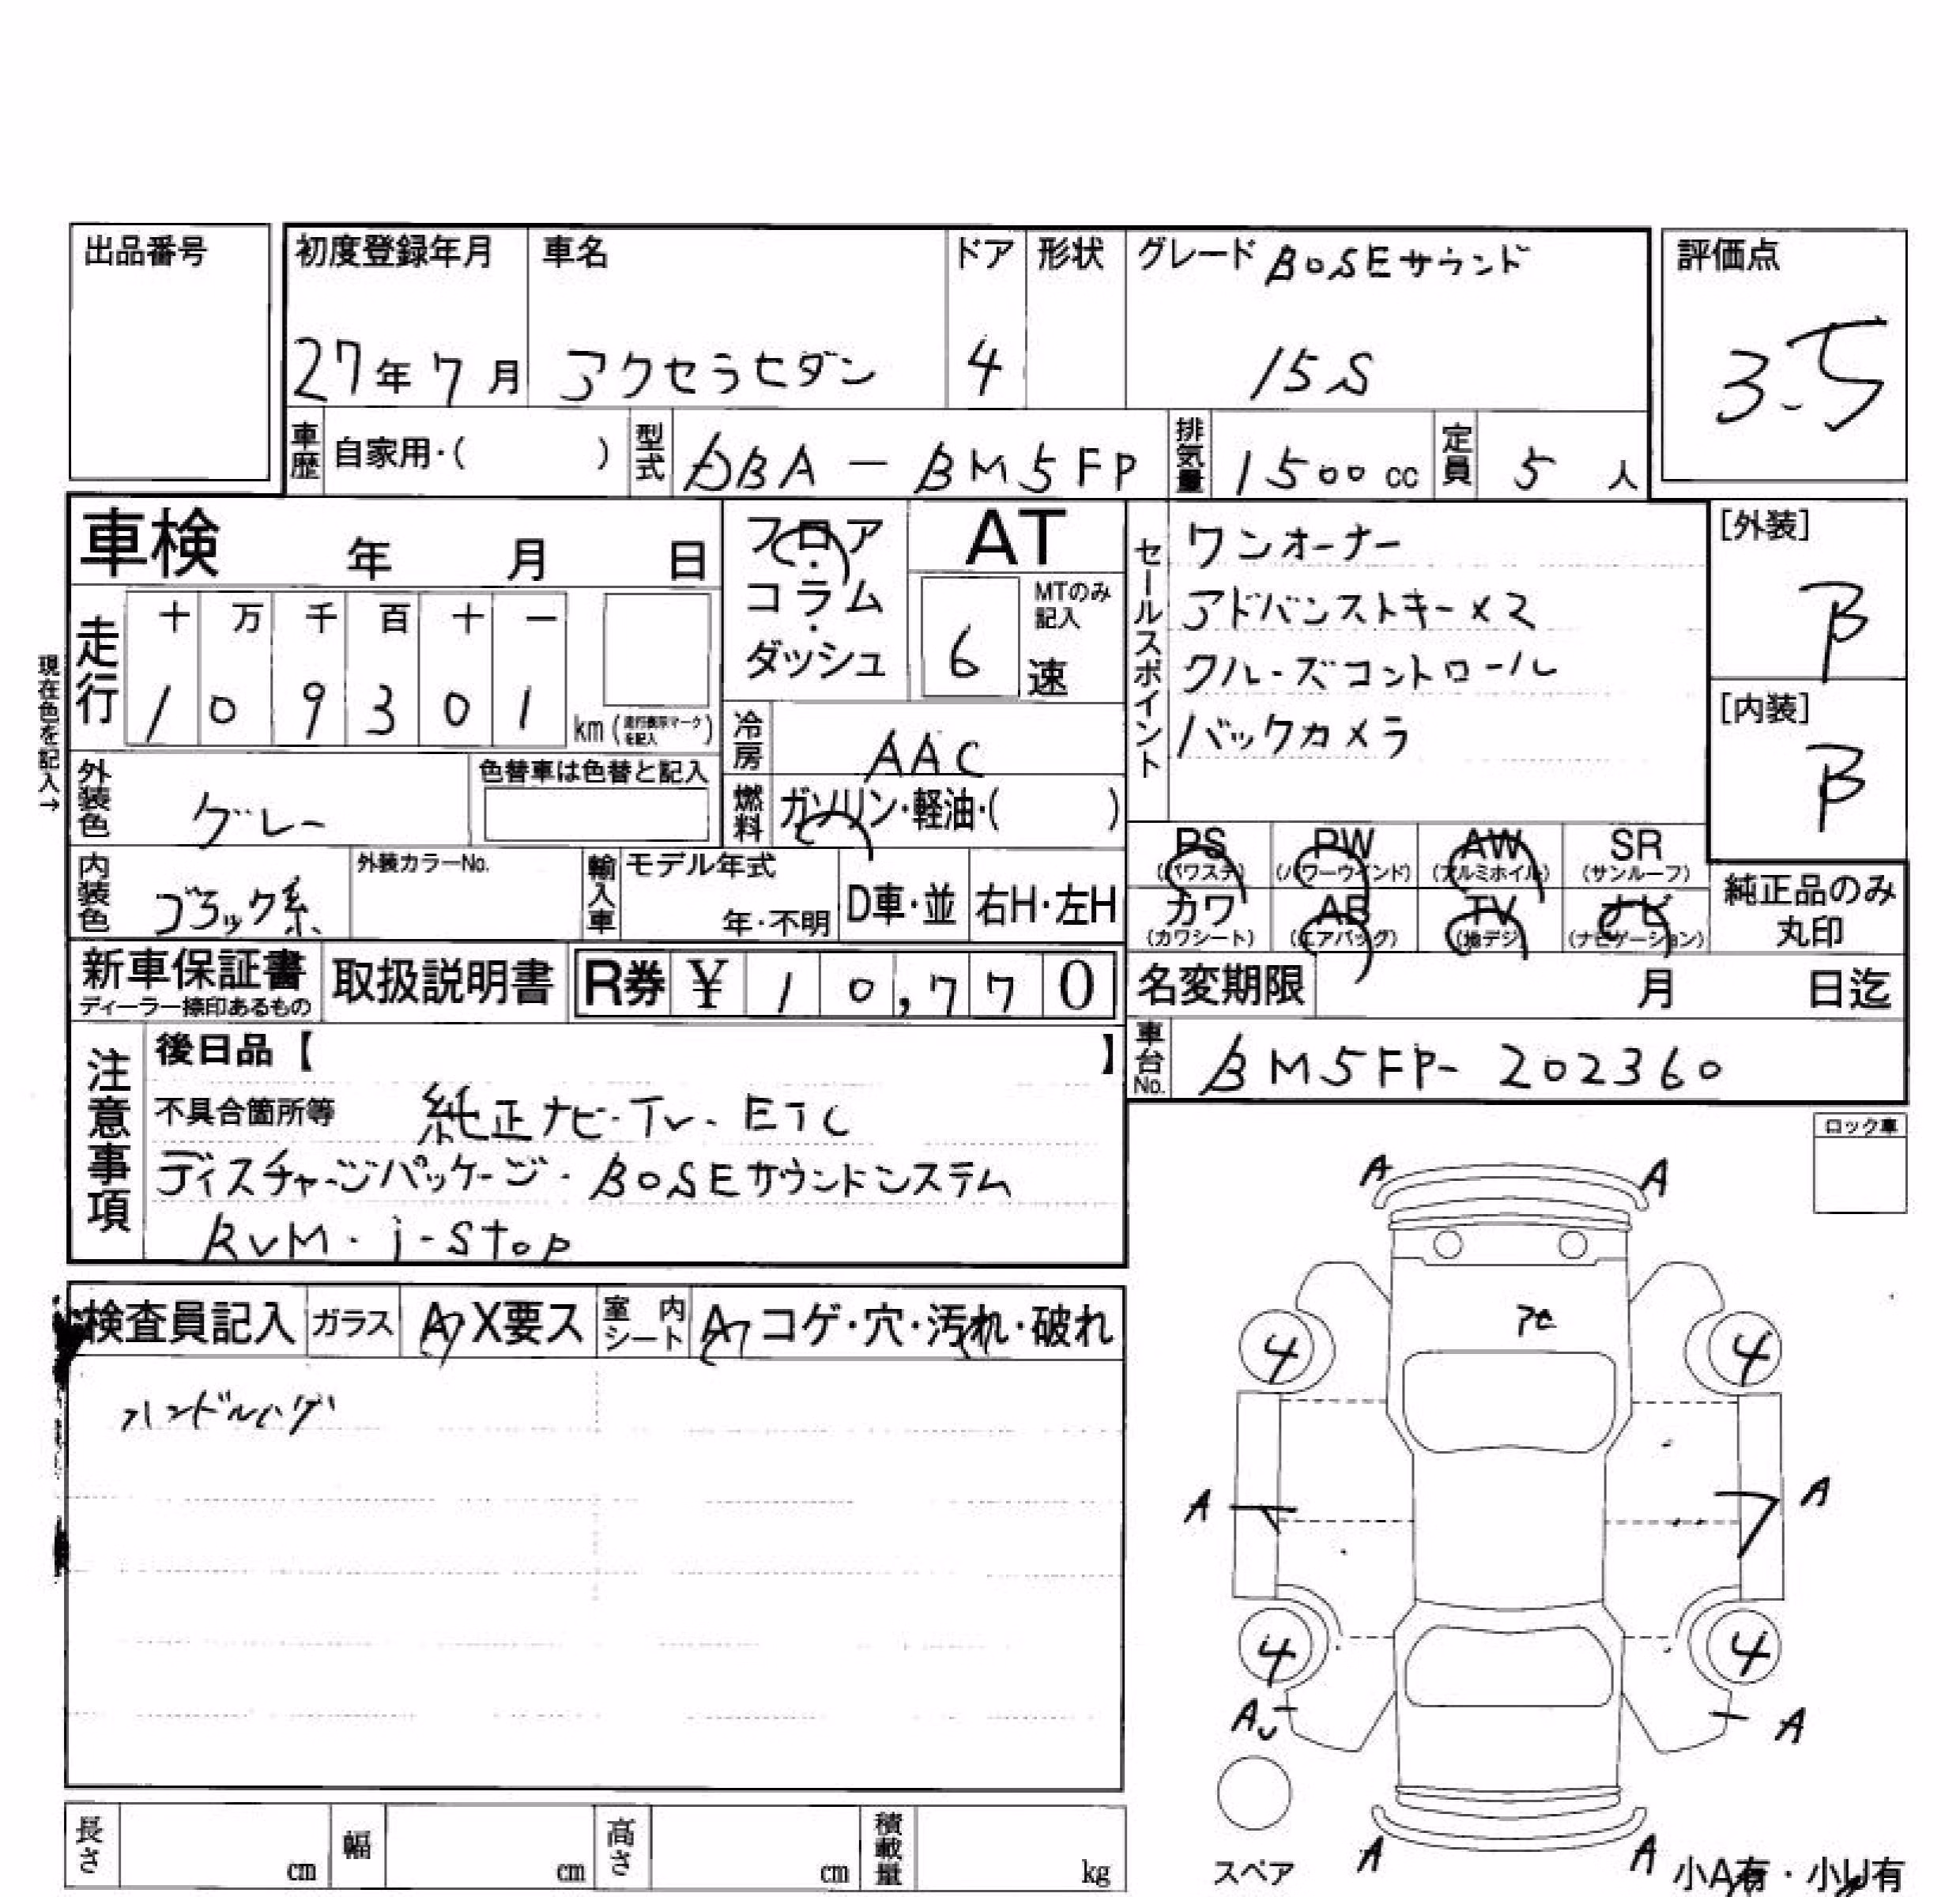 出品番号
初度登録年月 車名 ドア 形状 グレード BOSEサウンド 評価点
27年7月 アクセラセダン 4 15S 3.5
車歴 自家用・( ) 型式 DBA-BM5FP 排気量 1500cc 定員 5人
車検 年 月 日
フロア・コラム・ダッシュ
AT 6速 MTのみ記入
現在色を記入→
走行 十 万 千 百 十 一
1 0 9 3 0 1 km (走行表示マークを記入)
冷房 AAC
外装色 グレー 色替車は色替と記入
燃料 ガソリン・軽油・( )
内装色 ブラック系 外装カラーNo. 輸入車 モデル年式 年・不明 D車・並 右H・左H
セールスポイント
ワンオーナー
アドバンストキー×2
クルーズコントロール
バックカメラ
[外装] B
[内装] B
PS (パワステ) PW (パワーウインド) AW (アルミホイル) SR (サンルーフ)
カワ (カワシート) AB (エアバッグ) TV (地デジ) ナビ (ナビゲーション)
純正品のみ丸印
新車保証書 ディーラー捺印あるもの 取扱説明書 R券 ¥ 10,770
名変期限 月 日迄
車台No. BM5FP-202360
注意事項
後日品【 】
不具合箇所等 純正ナビ・TV・ETC
ディスチャージパッケージ・BOSEサウンドシステム
RVM・i-stop
ロック車
検査員記入 ガラス A X要ス 室内シート A コゲ・穴・汚れ・破れ
ハンドルハゲ
A A
4 4
A A
4 4
AU A
スペア A A 小A有・小U有
長さ cm 幅 cm 高さ cm 積載量 kg